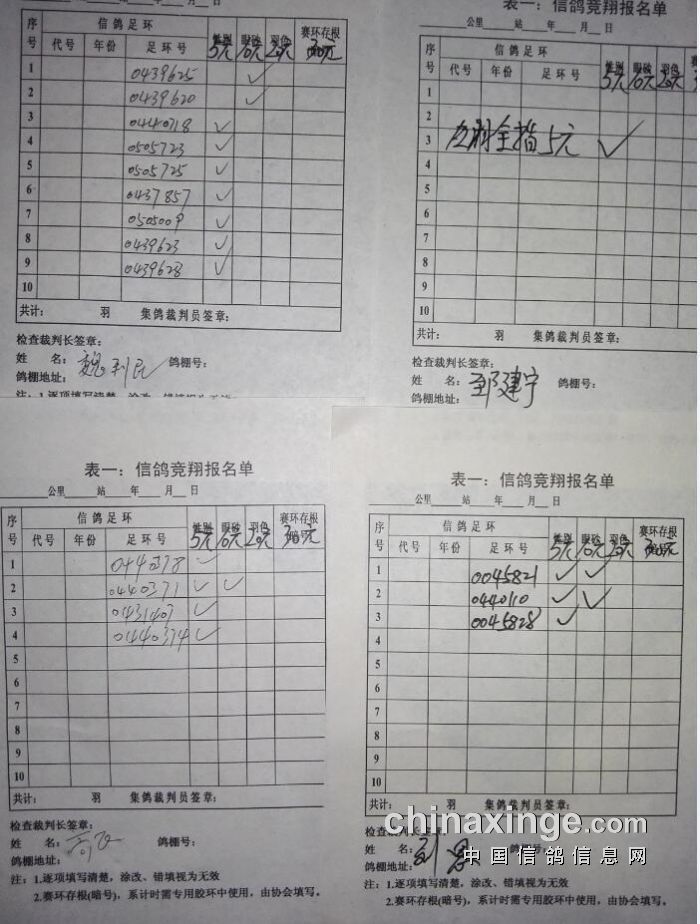 公里 站 年 月 日
序号 信鸽足环 性别 眼砂 羽色 赛环存根
代号 年份 足环号 5元 10元 20元 30元
1 0439625 ✓
2 0439620 ✓
3 0440718 ✓
4 0505723 ✓
5 0505725 ✓
6 0437857 ✓
7 0505009 ✓
8 0439623 ✓
9 0439628 ✓
10
共计： 羽 集鸽裁判员签章：
检查裁判长签章：
姓 名：魏利民 鸽棚号：
鸽棚地址：
表一：信鸽竞翔报名单
公里 站 年 月 日
序号 信鸽足环 赛环
代号 年份 足环号 5元 10元 20元
1
2
3 全指5元 ✓
4
5
6
7
8
9
10
共计： 羽 集鸽裁判员签章：
检查裁判长签章：
姓 名：郅建宁 鸽棚号：
鸽棚地址：
表一：信鸽竞翔报名单
公里 站 年 月 日
序号 信鸽足环 赛环存根
代号 年份 足环号 5元 10元 20元 30元
1 0440378 ✓
2 0440371 ✓ ✓
3 0431407 ✓
4 01440374 ✓
5
6
7
8
9
10
共计： 羽 集鸽裁判员签章：
检查裁判长签章：
姓 名： 鸽棚号：
鸽棚地址：
注：1.逐项填写清楚，涂改、错填视为无效
2.赛环存根(暗号)，系计时需专用胶环中使用，由协会填写。
表一：信鸽竞翔报名单
公里 站 年 月 日
序号 信鸽足环 性别 眼砂 羽色 赛环存根
代号 年份 足环号 5元 10元 20元
1 0045821 ✓ ✓
2 0440110 ✓ ✓
3 0045828 ✓
4
5
6
7
8
9
10
共计： 羽 集鸽裁判员签章：
检查裁判长签章：
姓 名： 鸽棚号：
鸽棚地址：
注：1.逐项填写清楚，涂改、错填视为无效
2.赛环存根(暗号)，系计时需专用胶环中使用，由协会填写。
chinaxinge.com
中国信鸽信息网